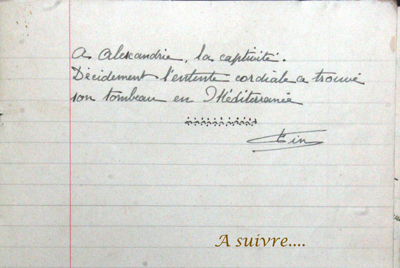 A Alexandrie, la captivité.
Décidement l'entente cordiale a trouvé
son tombeau en Méditerranée
Fin
A suivre....